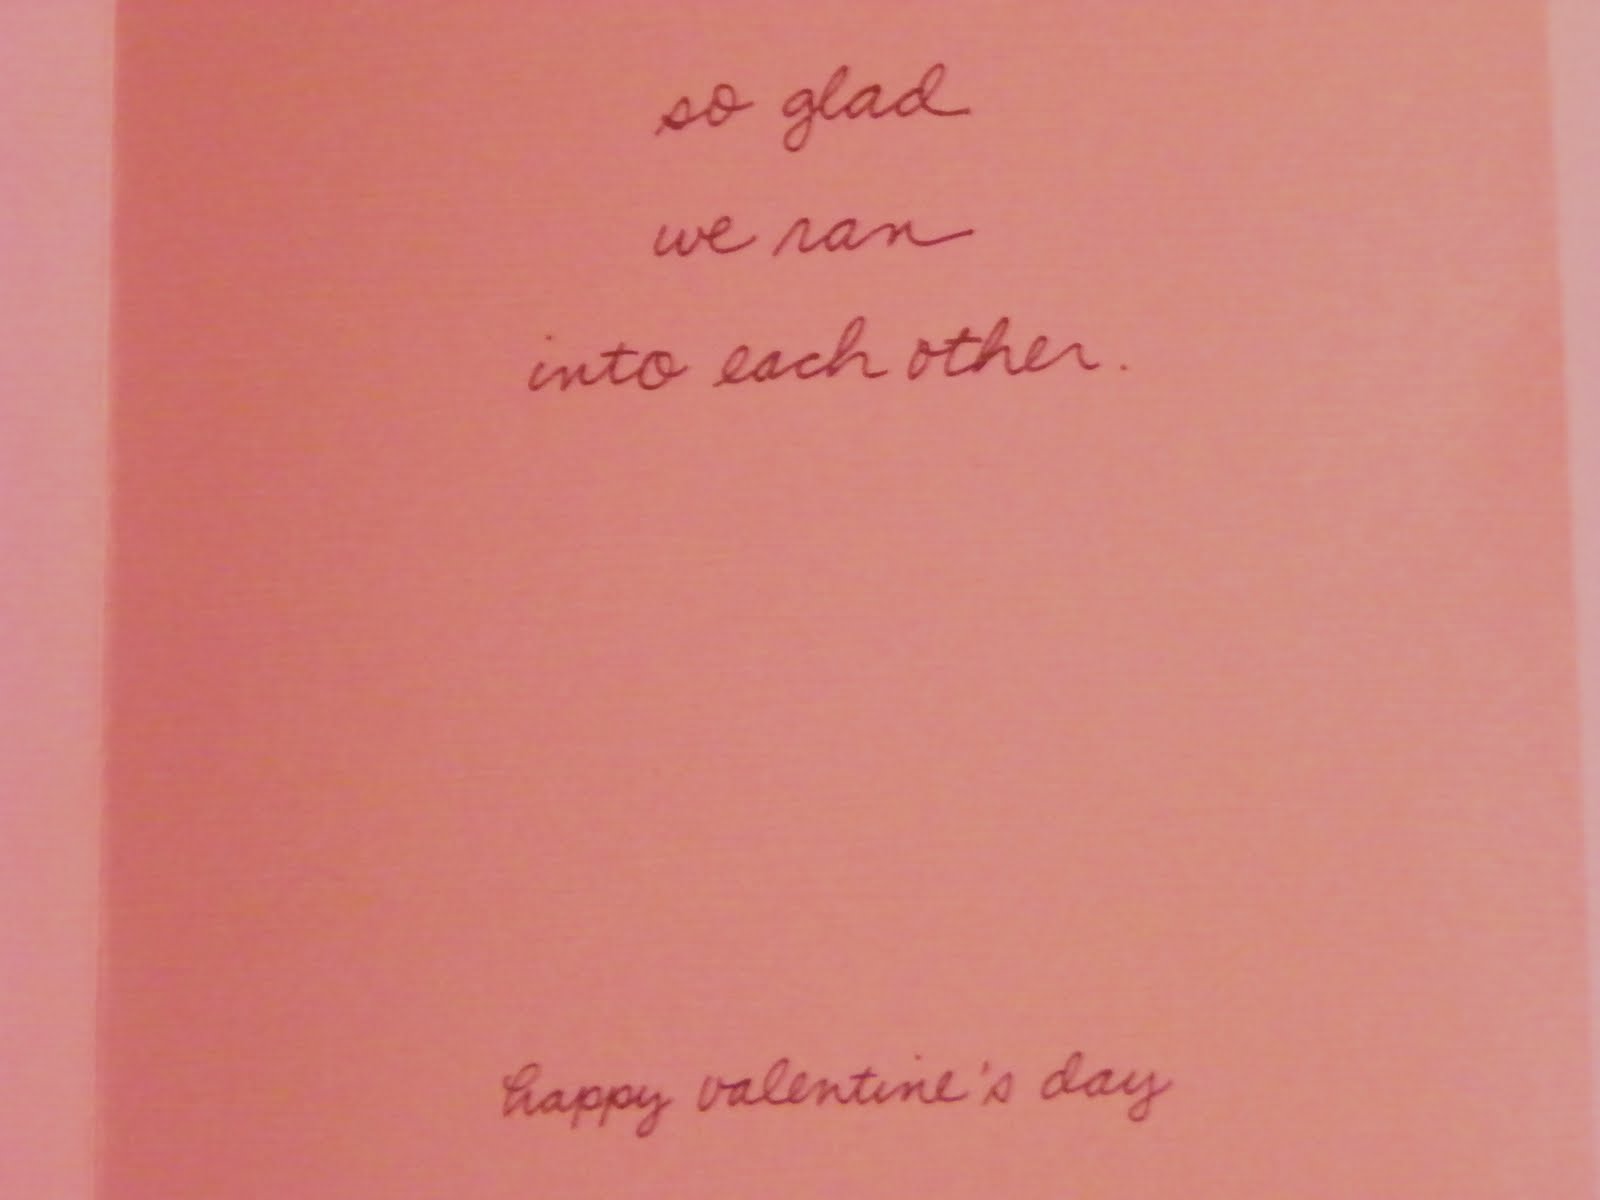 so glad
we ran
into each other.
happy valentine's day